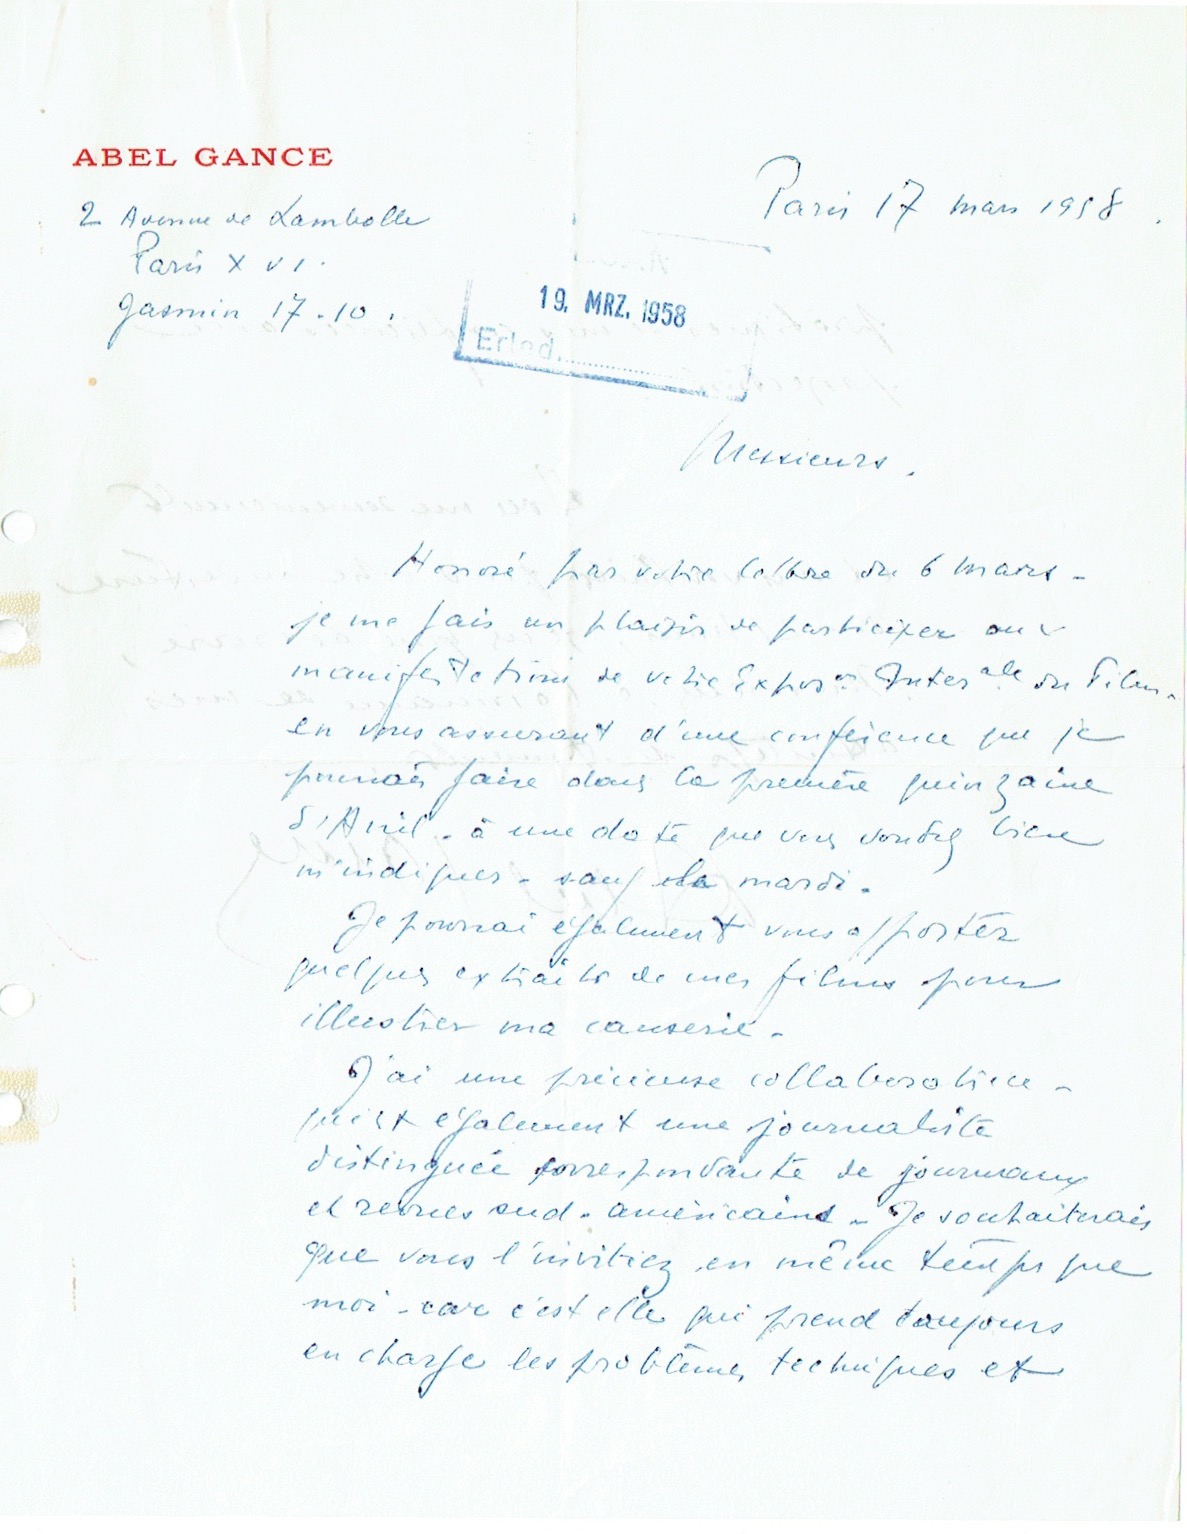 ABEL GANCE
2 Avenue de Lamballe
Paris XVI.
Jasmin 17.10.
Paris 17 mars 1958.
19. MRZ. 1958
Erled.
Messieurs.
Honoré par votre lettre du 6 mars -
je me fais un plaisir de participer aux
manifestations de votre Expos^on Inter^ale du Film -
en vous assurant d'une conférence que je
pourrais faire dans la première quinzaine
d'Avril - à une date que vous voudrez bien
m'indiquer - sauf le mardi.
Je pourrai également vous apporter
quelques extraits de mes films pour
illustrer ma causerie.
J'ai une précieuse collaboratrice -
qui est également une journaliste
distinguée correspondante de journaux
et revues sud-américains - Je souhaiterais
que vous l'invitiez en même temps que
moi - car c'est elle qui prend toujours
en charge les problèmes techniques et